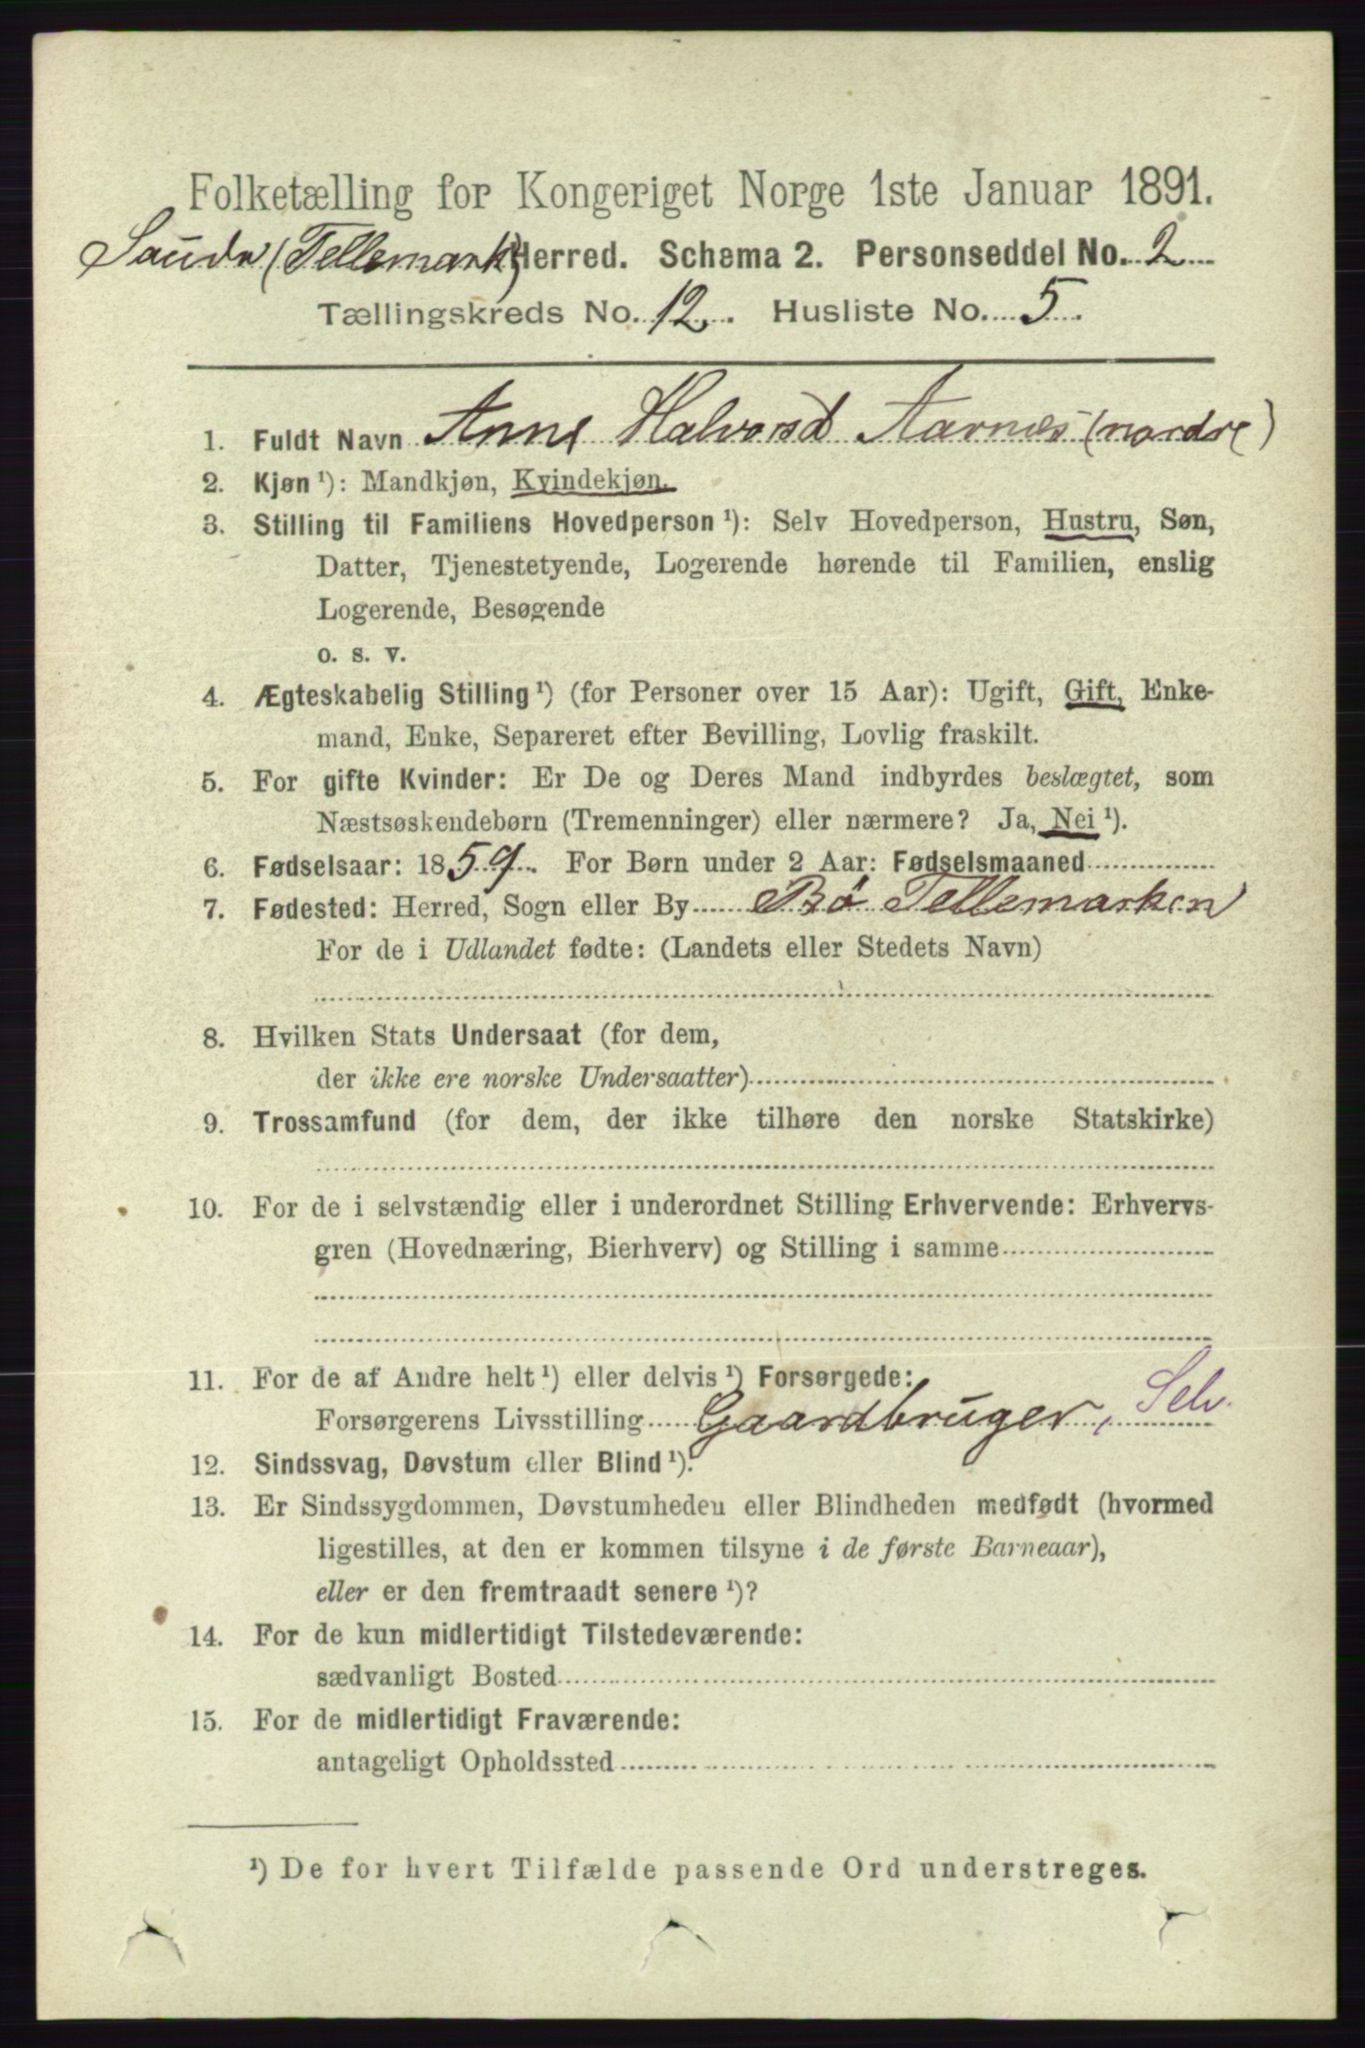 Folketælling for Kongeriget Norge 1ste Januar 1891.
Saude (Tellemark) Herred. Schema 2. Personseddel No. 2
Tællingskreds No. 12. Husliste No. 5.
1. Fuldt Navn Anne Halvorsd Aarnes (nordre)
2. Kjøn ¹): Mandkjøn, Kvindekjøn.
3. Stilling til Familiens Hovedperson ¹): Selv Hovedperson, Hustru, Søn,
Datter, Tjenestetyende, Logerende hørende til Familien, enslig
Logerende, Besøgende
o. s. v.
4. Ægteskabelig Stilling ¹) (for Personer over 15 Aar): Ugift, Gift, Enke-
mand, Enke, Separeret efter Bevilling, Lovlig fraskilt.
5. For gifte Kvinder: Er De og Deres Mand indbyrdes beslægtet, som
Næstsøskendebørn (Tremenninger) eller nærmere? Ja, Nei ¹).
6. Fødselsaar: 1859. For Børn under 2 Aar: Fødselsmaaned
7. Fødested: Herred, Sogn eller By Bø Tellemarken
For de i Udlandet fødte: (Landets eller Stedets Navn)
8. Hvilken Stats Undersaat (for dem,
der ikke ere norske Undersaatter)
9. Trossamfund (for dem, der ikke tilhøre den norske Statskirke)
10. For de i selvstændig eller i underordnet Stilling Erhvervende: Erhvervs-
gren (Hovednæring, Bierhverv) og Stilling i samme
11. For de af Andre helt ¹) eller delvis ¹) Forsørgede:
Forsørgerens Livsstilling Gaardbruger, Selv.
12. Sindssvag, Døvstum eller Blind ¹).
13. Er Sindssygdommen, Døvstumheden eller Blindheden medfødt (hvormed
ligestilles, at den er kommen tilsyne i de første Barneaar),
eller er den fremtraadt senere ¹)?
14. For de kun midlertidigt Tilstedeværende:
sædvanligt Bosted
15. For de midlertidigt Fraværende:
antageligt Opholdssted
¹) De for hvert Tilfælde passende Ord understreges.